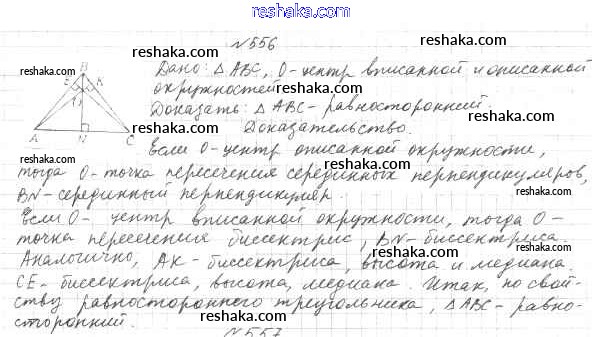 reshaka.com
№556
reshaka.com
B
reshaka.com
Дано: △ABC, O-центр вписанной и описанной
reshaka.com
окружностей
reshaka.com
E
K
O
Доказать: △ABC - равносторонний.
A
N
C
Доказательство.
reshaka.com
reshaka.com
Если O-центр описанной окружности,
тогда O-точка пересечения серединных перпендикуляров,
reshaka.com
reshaka.com
BN-серединный перпендикуляр.
Если O- центр вписанной окружности, тогда O-
reshaka.com
точка пересечения биссектрис, BN-биссектриса.
reshaka.com
Аналогично, AK-биссектриса, высота и медиана.
reshaka.com
CE-биссектриса, высота, медиана. Итак, по свой-
reshaka.com
ству равностороннего треугольника, △ABC-равно-
reshaka.com
сторонний.
reshaka.com
№557